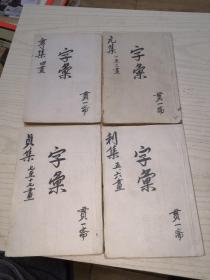 元集 一至三畫
字彙
貫一齋
亨集 四畫
字彙
貫一齋
利集 五六畫
字彙
貫一齋
貞集 七至十七畫
字彙
貫一齋